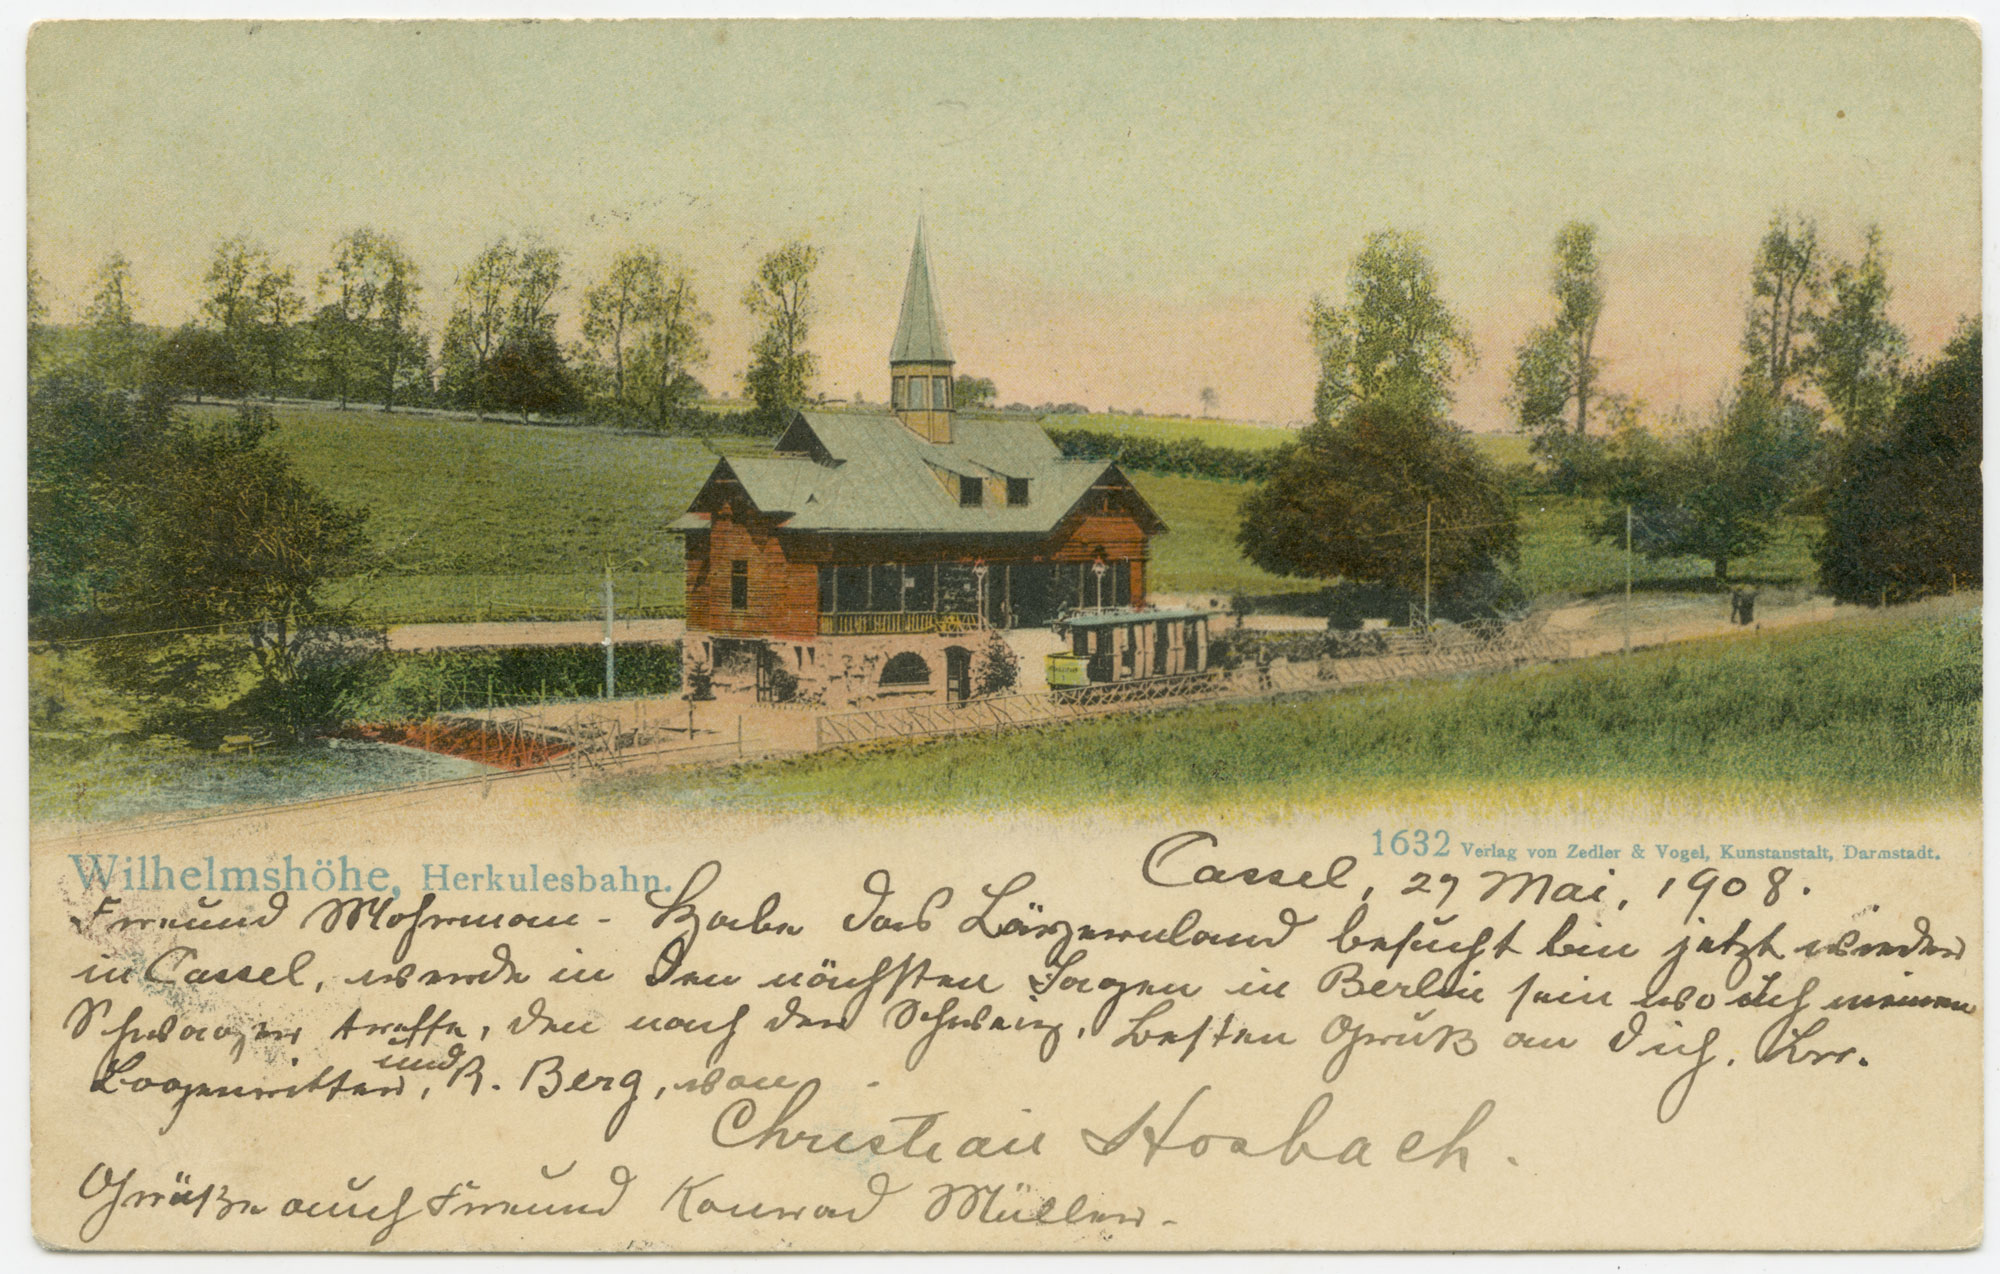 1632 Verlag von Zedler & Vogel, Kunstanstalt, Darmstadt.
Wilhelmshöhe, Herkulesbahn.
Cassel, 29 Mai, 1908.
Freund Mohrman - Habe das besucht bin jetzt wieder
in Cassel, werde in den nächsten Tagen in Berlin sein wo ich meinen
Schwager treffe, den nach der Schweiz. Besten Gruß an Dich,
und
R. Berg, von
Christian Hosbach.
Grüße auch Freund Konrad Müller.